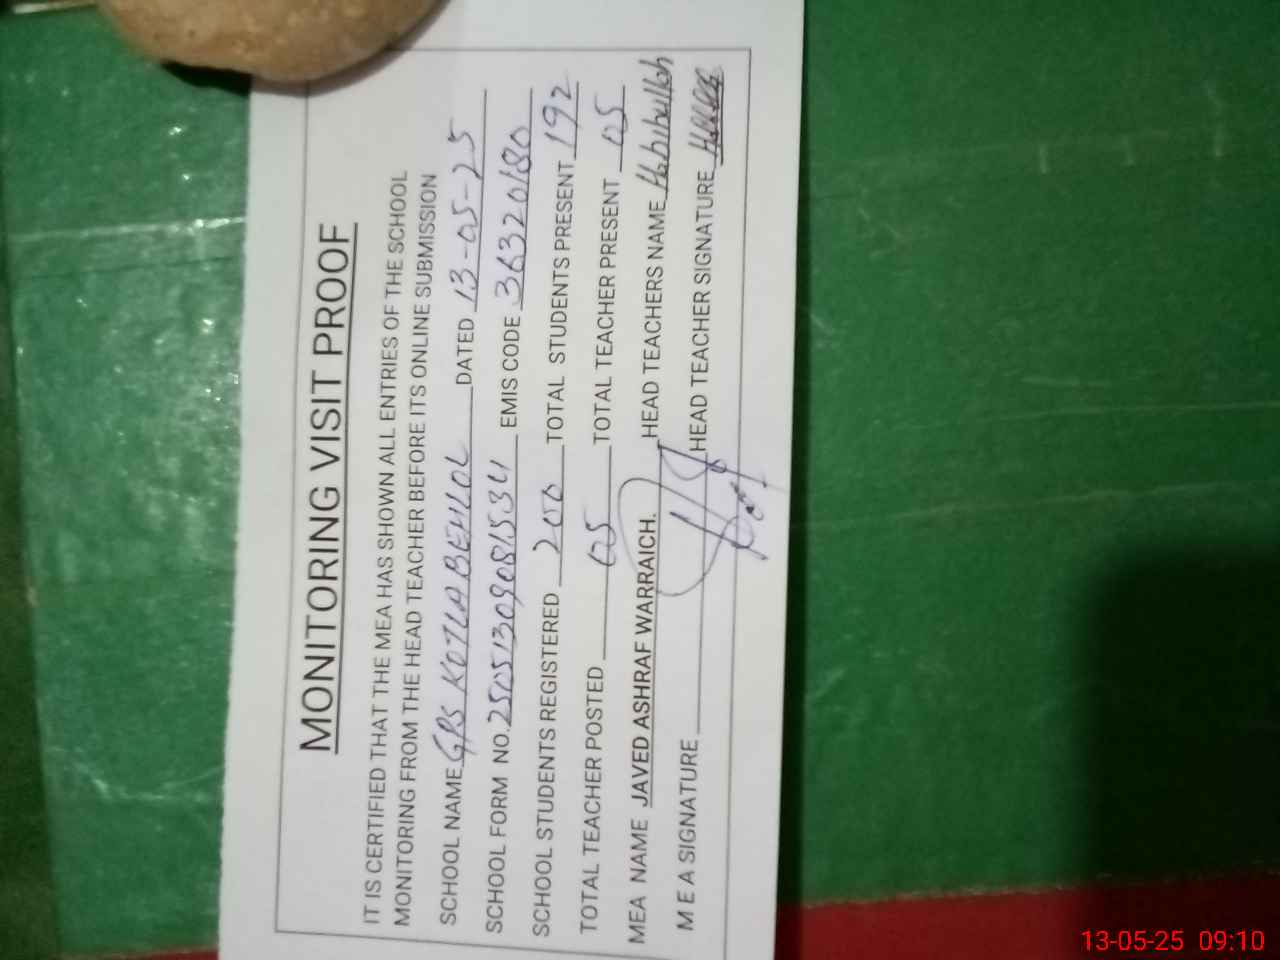 MONITORING VISIT PROOF
IT IS CERTIFIED THAT THE MEA HAS SHOWN ALL ENTRIES OF THE SCHOOL
MONITORING FROM THE HEAD TEACHER BEFORE ITS ONLINE SUBMISSION
SCHOOL NAME GPS KOTLA BEHLOL DATED 13-05-25
SCHOOL FORM NO. 25051309081534 EMIS CODE 36320180
SCHOOL STUDENTS REGISTERED 200 TOTAL STUDENTS PRESENT 192
TOTAL TEACHER POSTED 05 TOTAL TEACHER PRESENT 05
MEA NAME JAVED ASHRAF WARRAICH. HEAD TEACHERS NAME Habibullah
M E A SIGNATURE HEAD TEACHER SIGNATURE
13-05-25 09:10